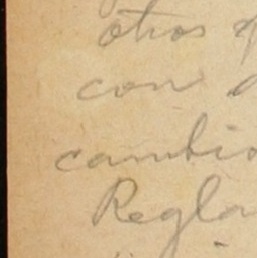 otros
con
cambio
Regla